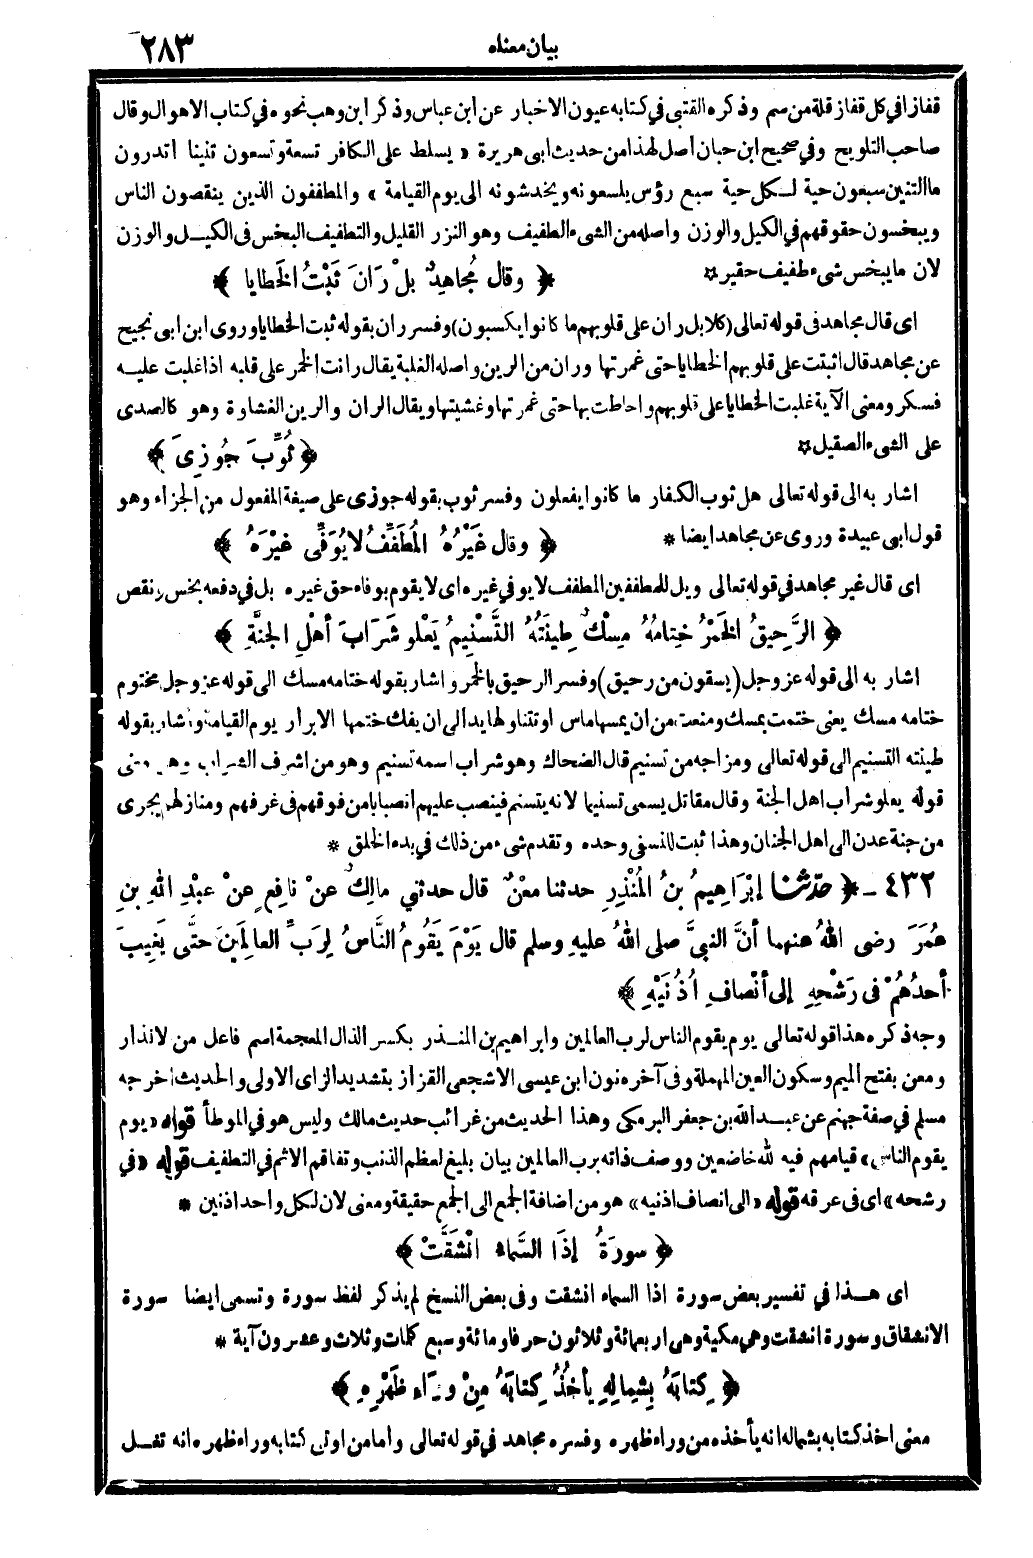 بيان معناه
٢٨٣
قفاز افي كل قفاز قلة من سم وذكره القتبي في كتابه عيون الاخبار عن ابن عباس وذكر ابن وهب نحوه في كتاب الاهوال وقال
صاحب التلويح وفي صحيح ابن حبان اصل لهذا من حديث ابى هريرة « يسلط على الكافر تسعة وتسعون تنينا اتدرون
ما التنين سبعون حية لـكل حية سبع رؤس يلسعونه ويخدشونه الى يوم القيامة » والمطففون الذين ينقصون الناس
ويبخسون حقوقهم في الكيل والوزن واصله من الشىء الطفيف وهو النزر القليل والتطفيف البخس فى الكيــل والوزن
لان ما يبخس شىء طفيف حقير ۞
﴿ وقال مُجاهِدٌ بلْ رَانَ ثَبْتُ الخَطايا ﴾
اى قال مجاهد فى قوله تعالى (كلا بل ران على قلوبهم ما كانوا يكسبون) وفسر ران بقوله ثبت الخطايا وروى ابن ابى نجيح
عن مجاهد قال اثبتت على قلوبهم الخطايا حتى غمرتها وران من الرين واصله الغلبة يقال رانت الخمر على قلبه اذا غلبت عليــه
فسكر ومعنى الآية غلبت الخطايا على قلوبهم واحاطت بها حتى غمرتها وغشيتها ويقال الران والرين الغشاوة وهو كالصدى
على الشىء الصقيل ۞
﴿ ثُوِّبَ جُوزِىَ ﴾
اشار به الى قوله تعالى هل ثوب الكفار ما كانوا يفعلون وفسر ثوب بقوله جوزى على صيغة المفعول من الجزاء وهو
قول ابى عبيدة وروى عن مجاهد ايضا *
﴿ وقال غَيْرُهُ المُطَفِّفُ لا يُوَفِّى غيْرَهُ ﴾
اى قال غير مجاهد في قوله تعالى ويل للمطففين المطفف لا يوفي غيره اى لا يقوم بوفاء حق غيره بل في دفعه بخس ونقص
﴿ الرَّحِيقُ الخَمْرُ خِتامُهُ مِسْكٌ طِينَتُهُ التَّسْنِيمُ يَعْلُو شَرَابَ أهْلِ الجَنَّةِ ﴾
اشار به الى قوله عز وجل (يسقون من رحيق) وفسر الرحيق بالخمر واشار بقوله ختامه مسك الى قوله عز وجل مختوم
ختامه مسك يعنى ختمت بمسك ومنعت من ان يمسها ماس او تتناولها يد الى ان يفك ختمها الابرار يوم القيامة واشار بقوله
طينته التسنيم الى قوله تعالى ومزاجه من تسنيم قال الضحاك وهو شراب اسمه تسنيم وهو من اشرف الشراب وهو معنى
قوله يعلو شراب اهل الجنة وقال مقاتل يسمى تسنيما لانه يتسنم فينصب عليهم انصبابا من فوقهم فى غرفهم ومنازلهم يجرى
من جنة عدن الى اهل الجنان وهذا ثبت للنسفى وحده وتقدم شىء من ذلك في بدء الخلق *
٤٣٢ ـ ﴿ حدّثنا إبْرَاهِيمُ بنُ المُنْذِرِ حدثنا معْنٌ قال حدثني مالِكٌ عنْ نافِعٍ عنْ عبْدِ اللهِ بنِ
عُمَرَ رضى اللهُ عنهما أنَّ النبيَّ صلى اللهُ عليهِ وسلم قال يَوْمَ يَقُومُ النَّاسُ لِرَبِّ العالمِينَ حتَّى يَغِيبَ
أحدُهُمْ فى رَشْحِهِ إلى أنْصافِ أُذُنَيْهِ ﴾
وجه ذكره هذا قوله تعالى يوم يقوم الناس لرب العالمين وابراهيم بن المنــذر بكسر الذال المعجمة اسم فاعل من لانذار
ومعن بفتح الميم وسكون العين المهملة وفى آخره نون ابن عيسى الاشجعى القزاز بتشديد الزاى الاولى والحديث اخرجه
مسلم في صفة جهنم عن عبــد الله بن جعفر البرمكى وهذا الحديث من غرائب حديث مالك وليس هو في الموطأ قوله « يوم
يقوم الناس » قيامهم فيه لله خاضعين ووصف ذاته برب العالمين بيان بليغ لعظم الذنب وتفاقم الاثم في التطفيف قوله « في
رشحه » اى فى عرقه قوله « الى انصاف اذنيه » هو من اضافة الجمع الى الجمع حقيقة ومعنى لان لكل واحد اذنين *
﴿ سورَةُ إذَا السَّماءُ انْشَقَّتْ ﴾
اى هــذا في تفسير بعض سورة اذا السماء انشقت وفى بعض النسخ لم يذكر لفظ سورة وتسمى ايضا سورة
الانشقاق وسورة انشقت وهي مكية وهى اربعمائة وثلاثون حرفا ومائة وسبع كلمات وثلاث وعشرون آية *
﴿ كِتابَهُ بِشِمالِهِ يأخُذُ كِتابَهُ مِنْ ورَاءِ ظَهْرِهِ ﴾
معنى اخذ كتابه بشماله انه يأخذه من وراء ظهره وفسره مجاهد في قوله تعالى وأما من اوتى كتابه وراء ظهره انه تغــل